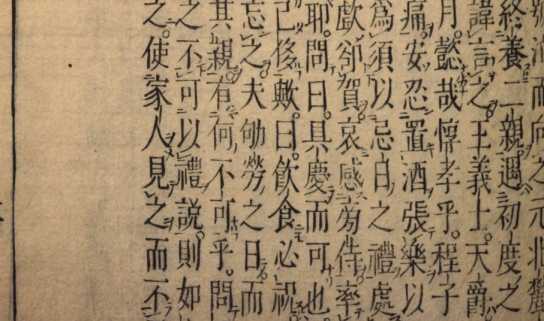 消而向之元北
終養二親遇初度之
諱言之王義士天爵
月懿哉惇孝乎程子
痛安忍置酒張樂以
爲須以忌日之禮處
歔卻賀哀感旁侍率
耶問曰具慶而可也
己後歟曰飮食必祝
忘之夫劬勞之日而
其親有何不可乎問
之不可以禮說則如
之使家人見之而不